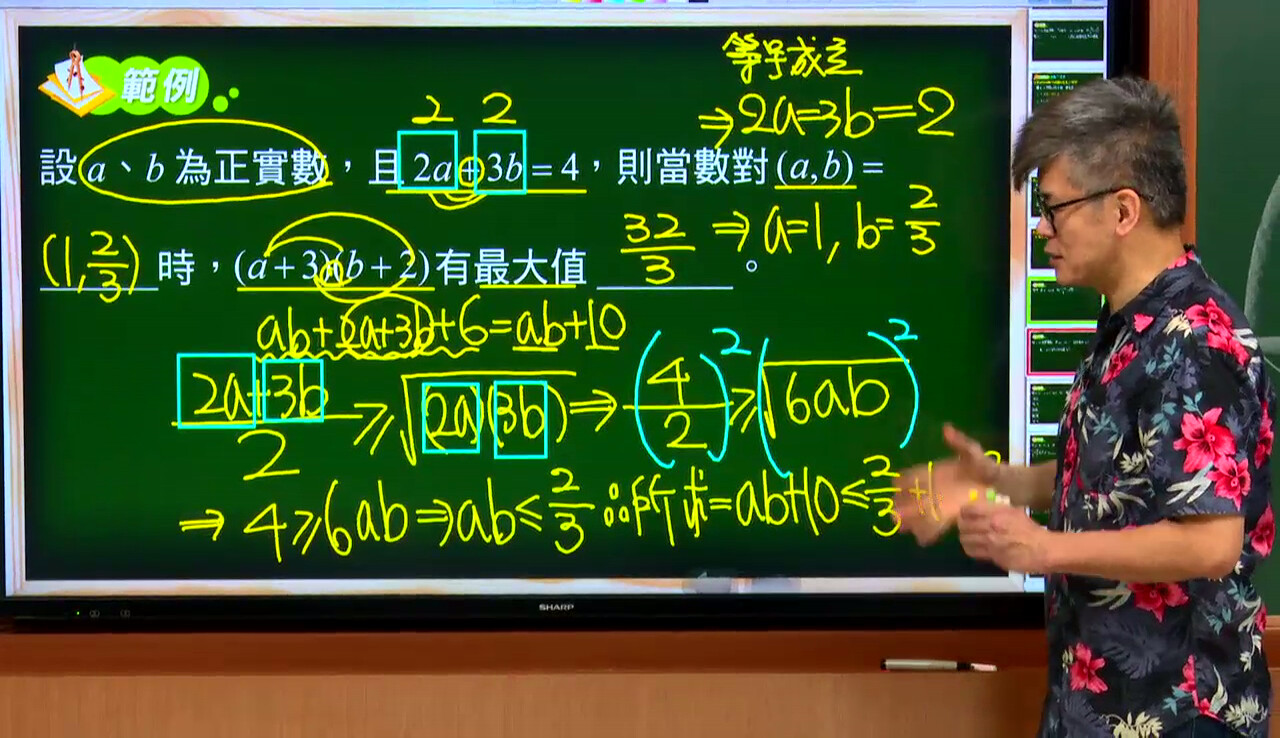 範例
等号成立
⇒2a=3b=2
2 2
設 a、b 為正實數，且 2a+3b=4，則當數對 (a,b)=
⇒a=1, b=2/3
(1, 2/3) 時，(a+3)(b+2)有最大值 32/3 。
ab+2a+3b+6=ab+10
(2a+3b)/2 ≥ √(2a)(3b) ⇒ (4/2)² ≥ (√6ab)²
⇒ 4≥6ab ⇒ ab≤2/3 ∴所求=ab+10≤2/3+
SHARP